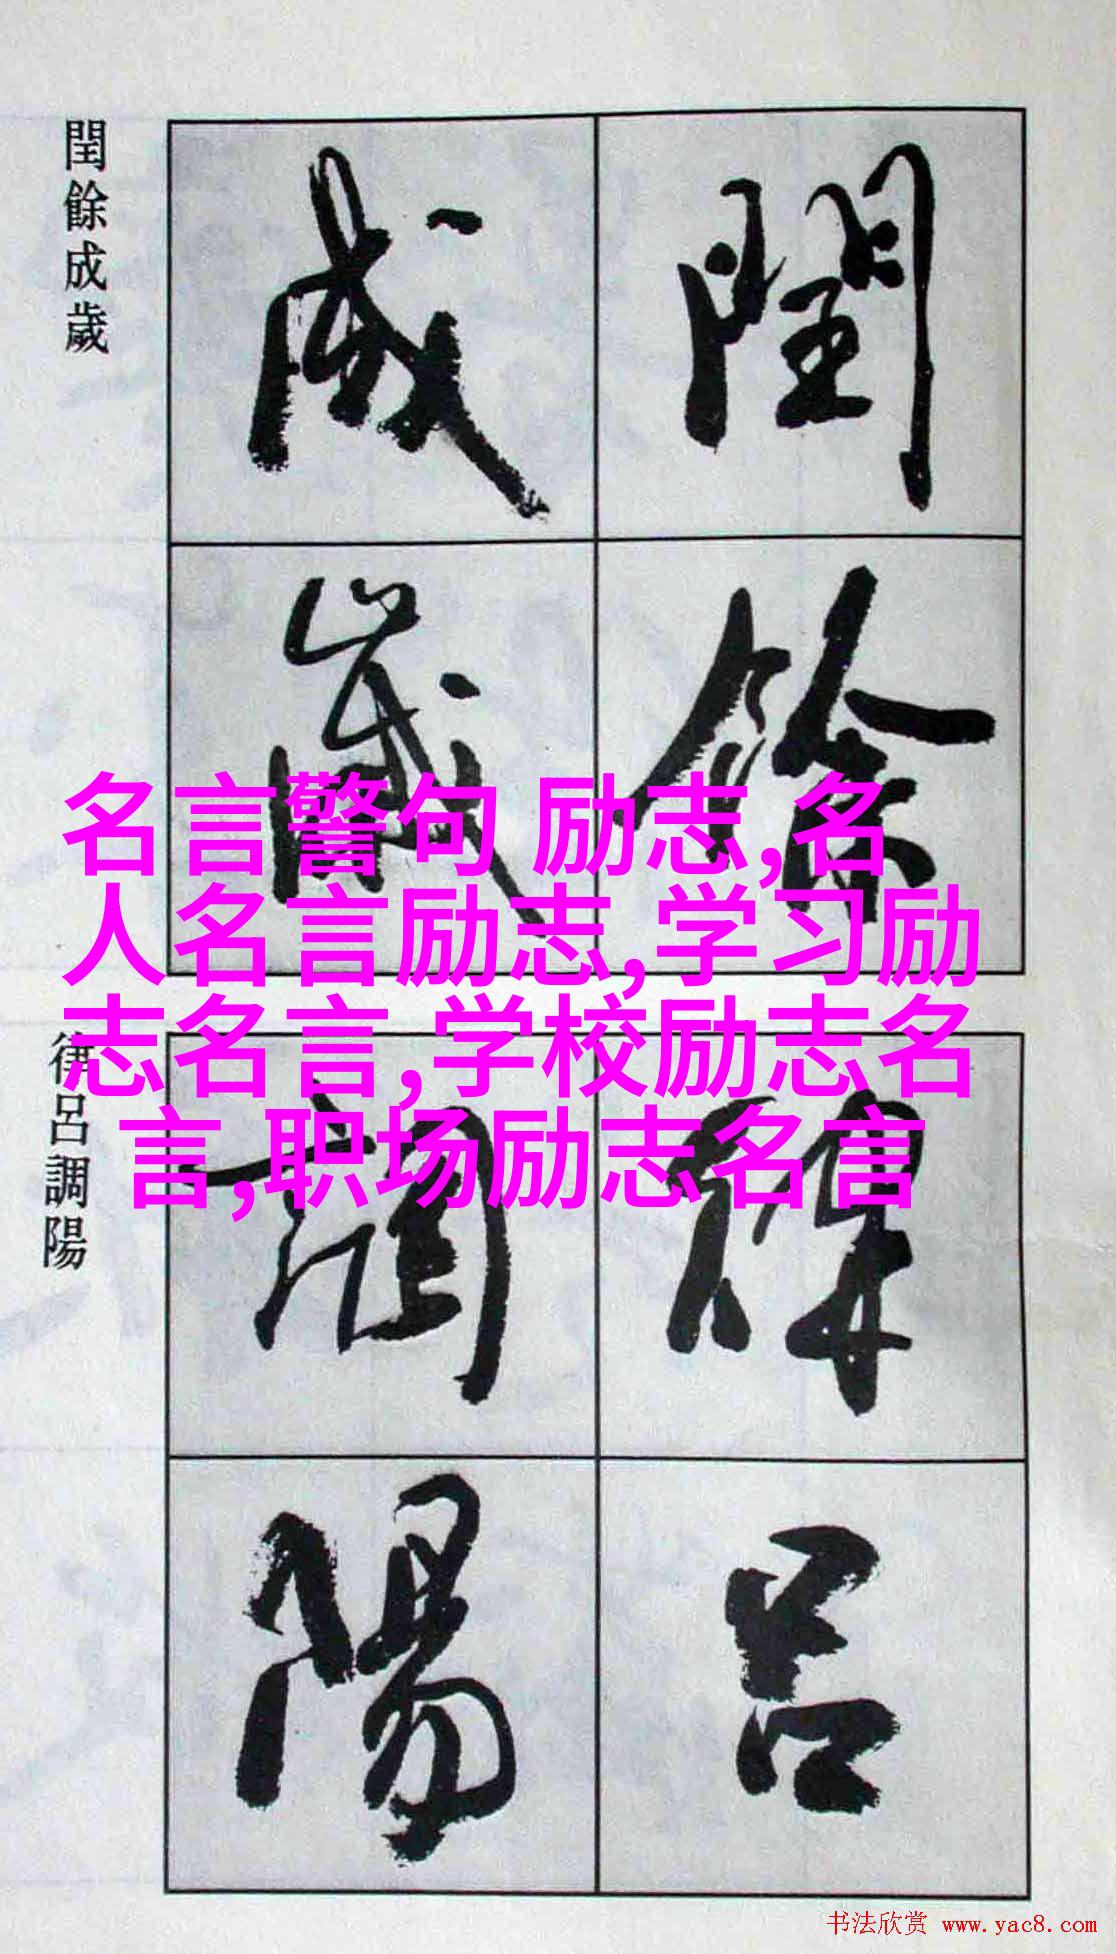 閏餘
成歲
閏餘成歲
名言警句 励志,名
人名言励志,学习励
志名言,学校励志名
言,职场励志名言
律呂
調陽
律呂調陽
书法欣赏 www.yac8.com